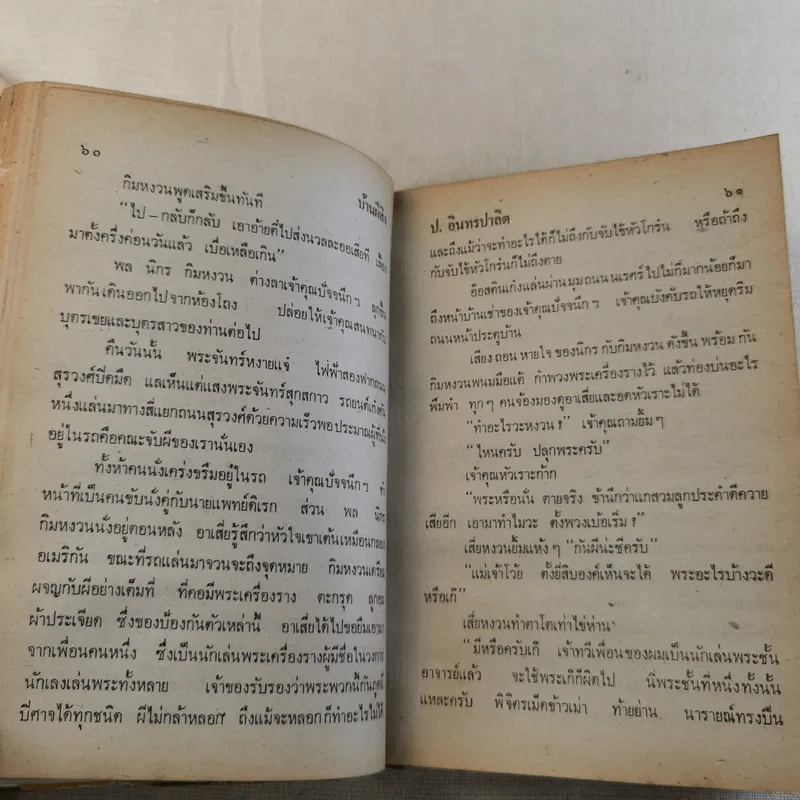 ๖๐
บ้านผีสิง
กิมหงวนพูดเสริมขึ้นทันที
“ไป – กลับก็กลับ เอาอ้ายตี๋ไปส่งนวลละออเสียที
มาตั้งครึ่งค่อนวันแล้ว เบื่อเหลือเกิน”
พล นิกร กิมหงวน ต่างลาเจ้าคุณปัจจนึกฯ ลุกขึ้น
พากันเดินออกไปจากห้องโถง ปล่อยให้เจ้าคุณสนทนากับ
บุตรเขยและบุตรสาวของท่านต่อไป
คืนวันนั้น พระจันทร์หงายแจ๋ ไฟฟ้าสองฟากถนน
สุรวงศ์ปิดมืด แลเห็นแต่แสงพระจันทร์สุกสกาว รถยนต์เก๋งคัน
หนึ่งแล่นมาทางสี่แยกถนนสุรวงศ์ด้วยความเร็วพอประมาณผู้ที่นั่ง
อยู่ในรถคือคณะจับผีของเรานั่นเอง
ทั้งห้าคนนั่งเคร่งขรึมอยู่ในรถ เจ้าคุณปัจจนึกฯ ทำ
หน้าที่เป็นคนขับนั่งคู่กับนายแพทย์ดิเรก ส่วน พล นิกร
กิมหงวนนั่งอยู่ตอนหลัง อาเสี่ยรู้สึกว่าหัวใจเขาเต้นเหมือนกลอง
อเมริกัน ขณะที่รถแล่นมาจวนจะถึงจุดหมาย กิมหงวนเตรียม
ผจญกับผีอย่างเต็มที่ ที่คอมีพระเครื่องราง ตะกรุด ลูกอม
ผ้าประเจียด ซึ่งของป้องกันตัวเหล่านี้ อาเสี่ยได้ไปขอยืมเอามา
จากเพื่อนคนหนึ่ง ซึ่งเป็นนักเล่นพระเครื่องรางผู้มีชื่อในวงการ
นักเลงเล่นพระทั้งหลาย เจ้าของรับรองว่าพระพวกนี้กันภูตผี
ปีศาจได้ทุกชนิด ผีไม่กล้าหลอก ถึงแม้จะหลอกก็ทำอะไรไม่ได้
ป. อินทรปาลิต
๖๑
และถึงแม้ว่าจะทำอะไรได้ก็ไม่ถึงกับจับไข้หัวโกร๋น หรือถ้าถึง
กับจับไข้หัวโกร๋นก็ไม่ถึงตาย
อ๊อสตินเก๋งแล่นผ่านมุมถนนนเรศร์ไปไม่กี่มากน้อยก็มา
ถึงหน้าบ้านเช่าของเจ้าคุณปัจจนึกฯ เจ้าคุณบังคับรถให้หยุดริม
ถนนหน้าประตูบ้าน
เสียงถอนหายใจของนิกรกับกิมหงวนดังขึ้นพร้อมกัน
กิมหงวนพนมมือแต้ กำพวงพระเครื่องรางไว้ แล้วท่องบ่นอะไร
พึมพำ ทุกๆ คนจ้องมองดูอาเสี่ยและอดหัวเราะไม่ได้
“ทำอะไรวะหงวน ?” เจ้าคุณถามยิ้มๆ
“ไหนครับ ปลุกพระครับ”
เจ้าคุณหัวเราะก้าก
“พระหรือนั่น ตายจริง ข้านึกว่าแกสวมลูกประคำดีควาย
เสียอีก เอามาทำไมวะ ตั้งพวงเบ้อเริ่ม ?”
เสี่ยหงวนยิ้มแห้งๆ “กันผีน่ะซีครับ”
“แม่เจ้าโว้ย ตั้งยี่สิบองค์เห็นจะได้ พระอะไรบ้างวะดี
หรือเก๊”
เสี่ยหงวนทำตาโตเท่าไข่ห่าน
“มีหรือครับเก๊ เจ้าทวีเพื่อนของผมเป็นนักเล่นพระชั้น
อาจารย์แล้ว จะใช้พระเก๊ก็ผิดไป นี่พระชั้นที่หนึ่งทั้งนั้น
แหละครับ พิจิตรเม็ดข้าวเม่า ท้ายย่าน นารายณ์ทรงปืน